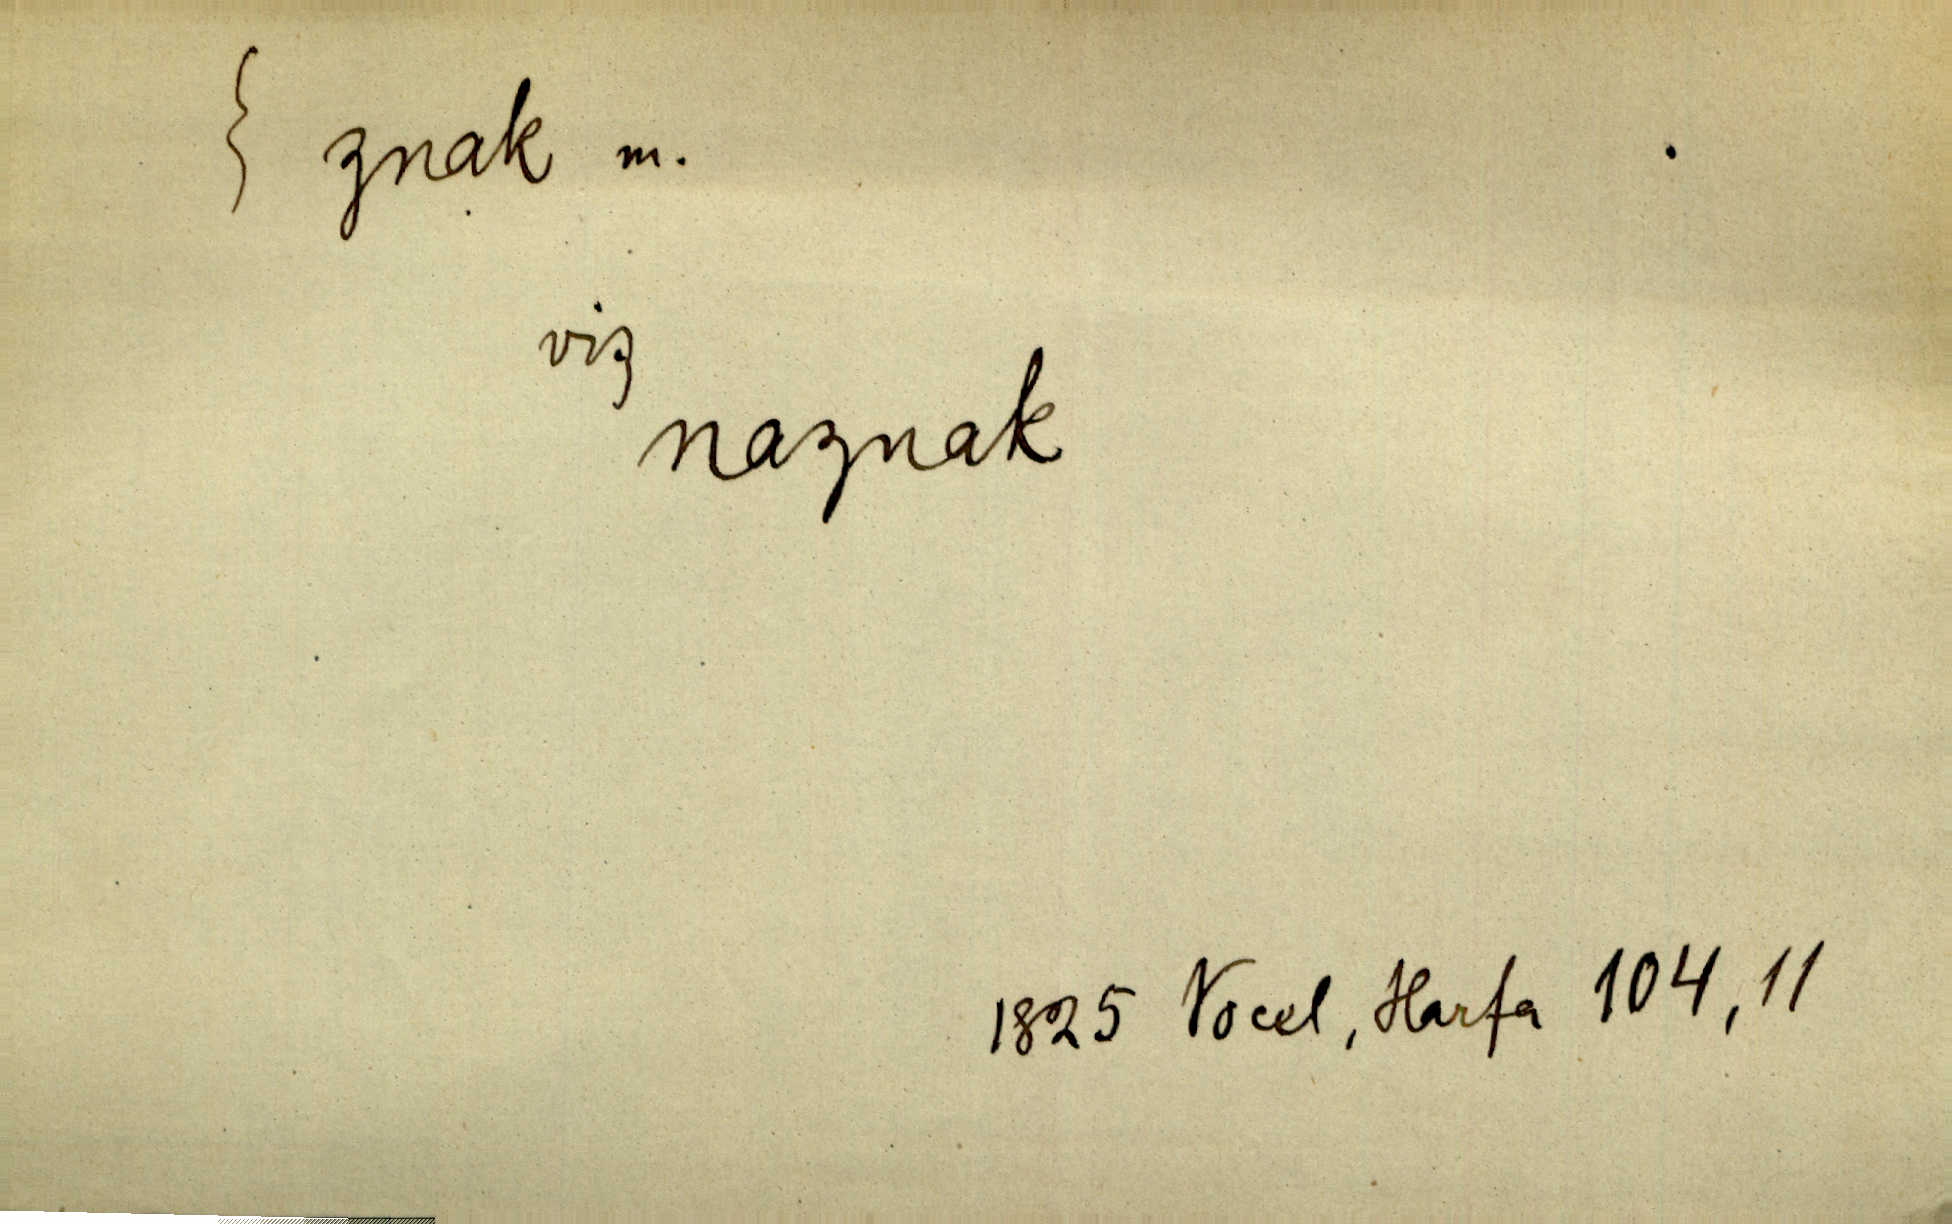 } znak m.
viz
naznak
1825 Vocel, Harfa 104, 11